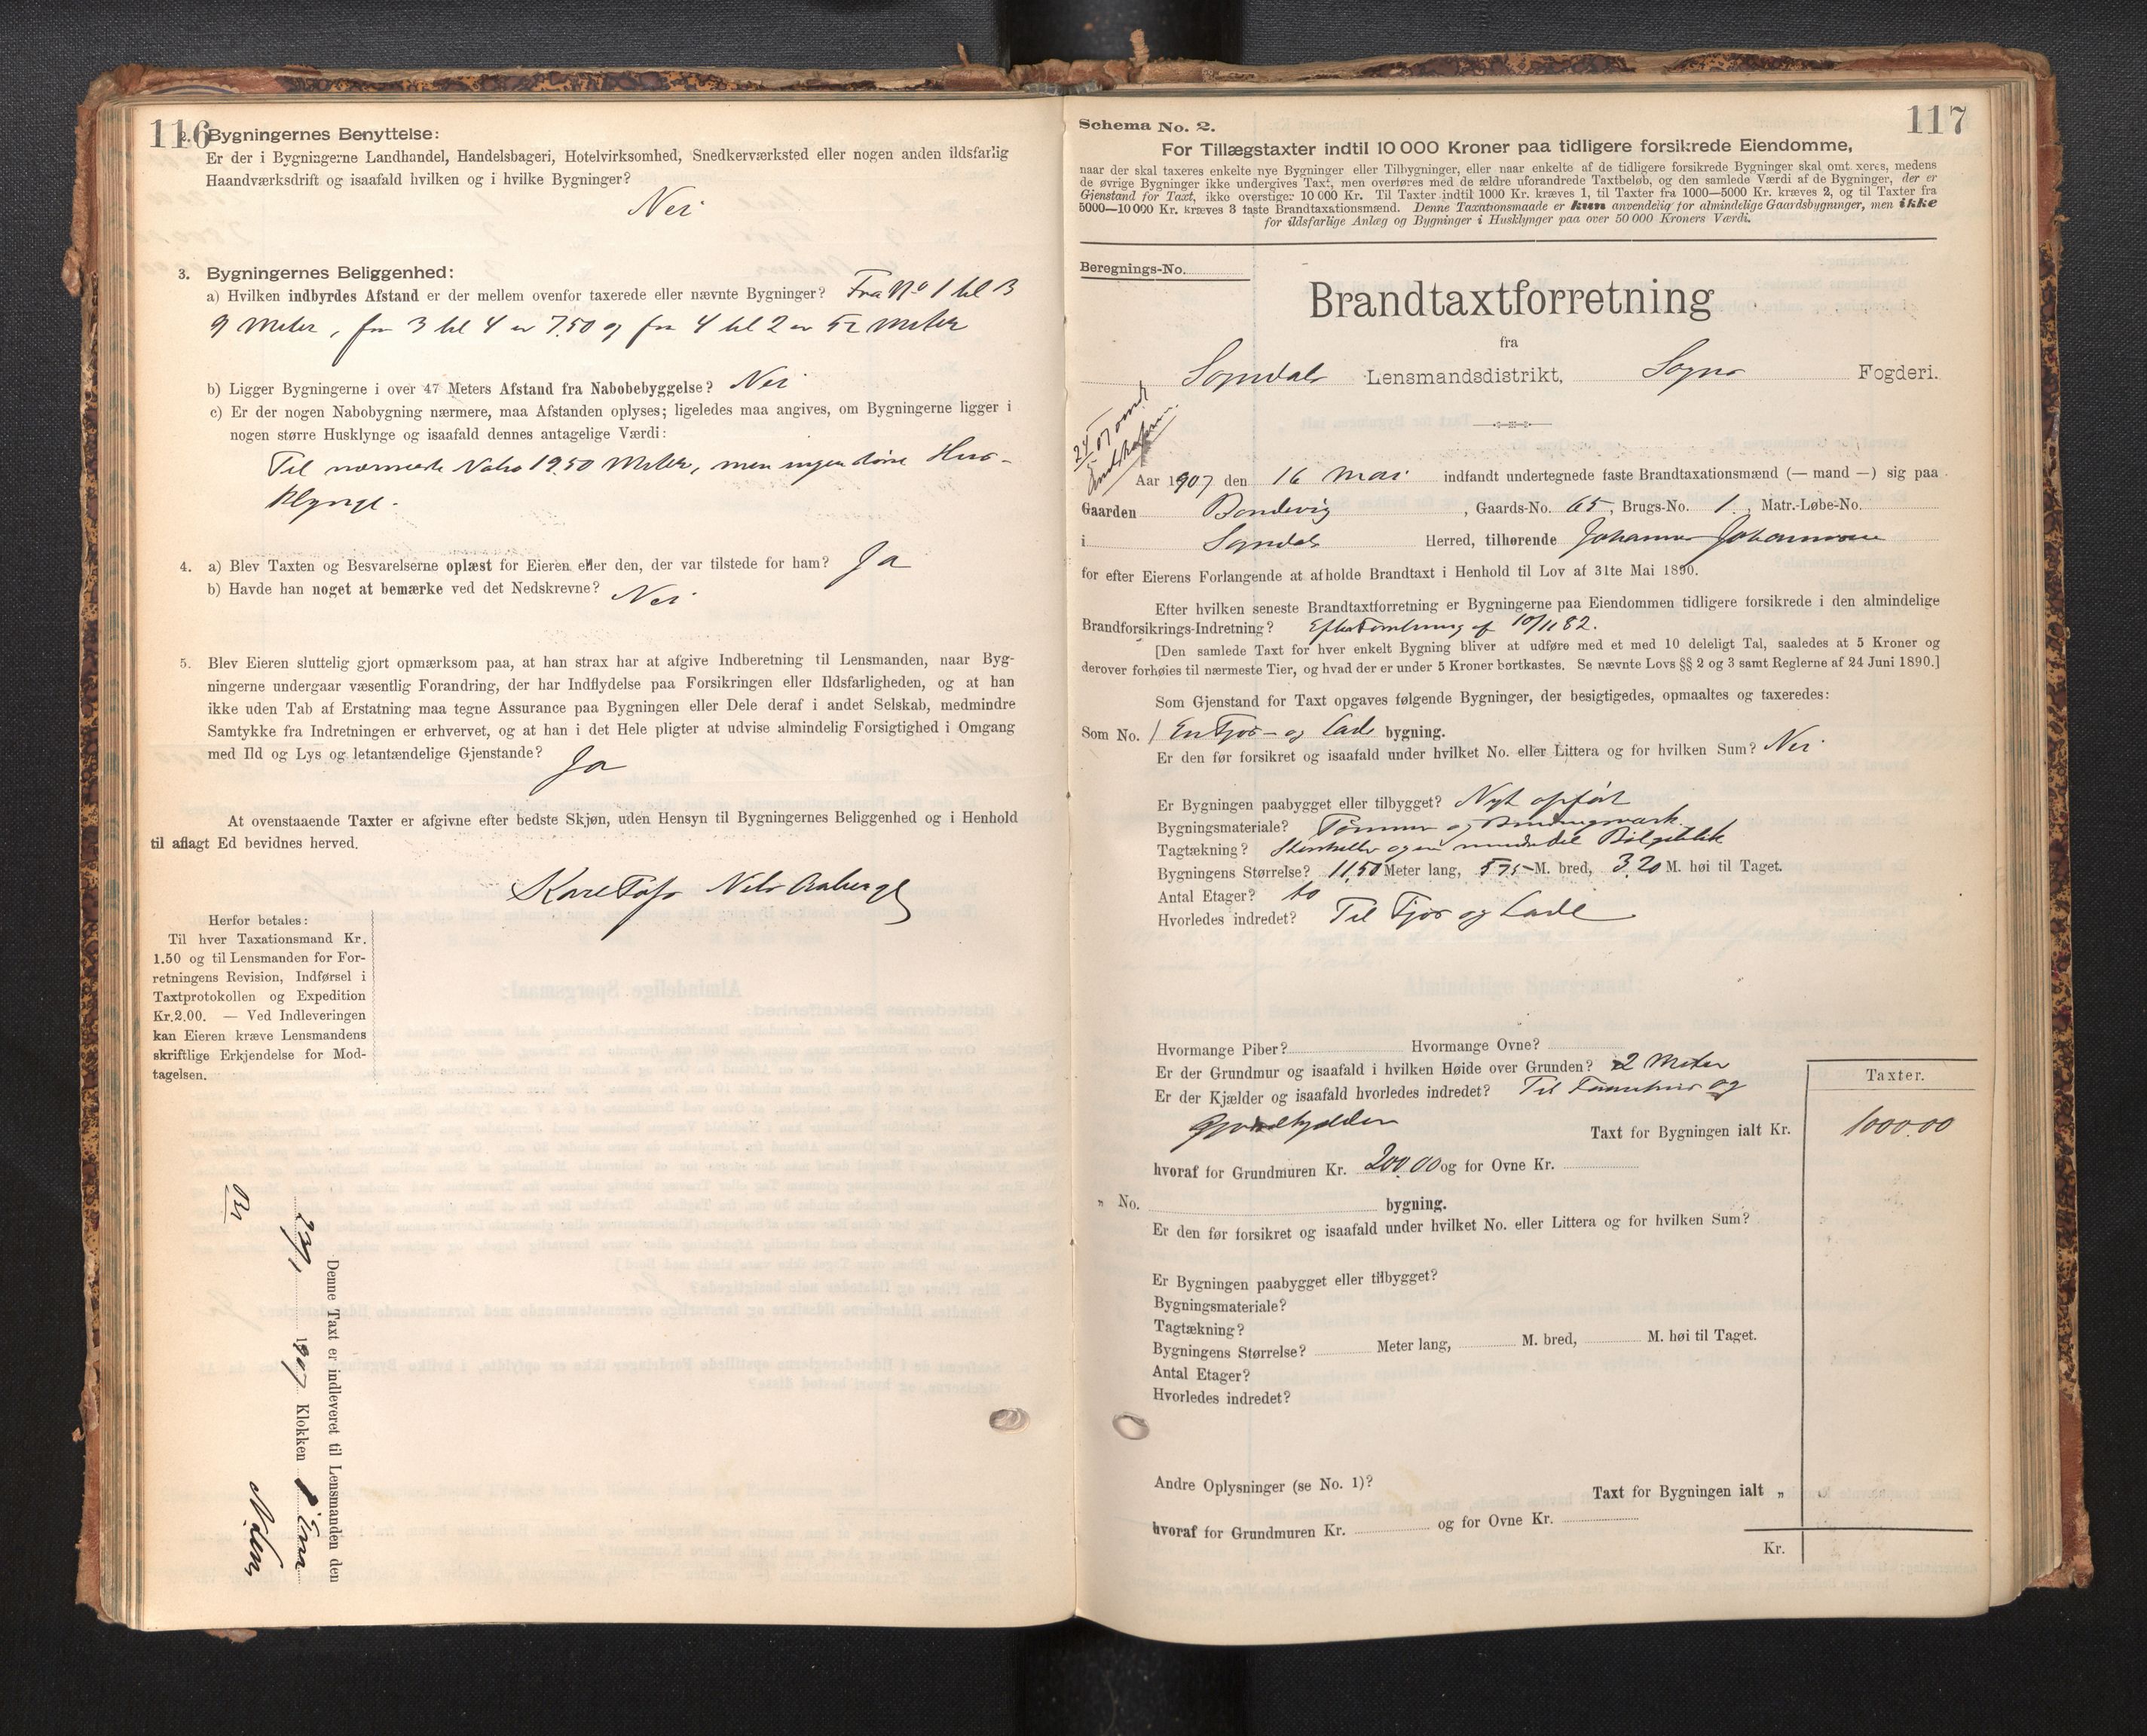 116
2. Bygningernes Benyttelse:
Er der i Bygningerne Landhandel, Handelsbageri, Hotelvirksomhed, Snedkerværksted eller nogen anden ildsfarlig
Haandværksdrift og isaafald hvilken og i hvilke Bygninger?
Nei
3. Bygningernes Beliggenhed:
a) Hvilken indbyrdes Afstand er der mellem ovenfor taxerede eller nævnte Bygninger? Fra No 1 til 3
9 Meter, fra 3 til 4 er 7.50 og fra 4 til 2 er 52 Meter
b) Ligger Bygningerne i over 47 Meters Afstand fra Nabobebyggelse? Nei
c) Er der nogen Nabobygning nærmere, maa Afstanden oplyses; ligeledes maa angives, om Bygningerne ligger i
nogen større Husklynge og isaafald dennes antagelige Værdi:
Til nærmeste Nabo 19.50 Meter, men ingen større Hus-
klynge.
4. a) Blev Taxten og Besvarelserne oplæst for Eieren eller den, der var tilstede for ham? Ja
b) Havde han noget at bemærke ved det Nedskrevne? Nei
5. Blev Eieren sluttelig gjort opmærksom paa, at han strax har at afgive Indberetning til Lensmanden, naar Byg-
ningerne undergaar væsentlig Forandring, der har Indflydelse paa Forsikringen eller Ildsfarligheden, og at han
ikke uden Tab af Erstatning maa tegne Assurance paa Bygningen eller Dele deraf i andet Selskab, medmindre
Samtykke fra Indretningen er erhvervet, og at han i det Hele pligter at udvise almindelig Forsigtighed i Omgang
med Ild og Lys og letantændelige Gjenstande? Ja
At ovenstaaende Taxter er afgivne efter bedste Skjøn, uden Hensyn til Bygningernes Beliggenhed og i Henhold
til aflagt Ed bevidnes herved.
Nils Aaberge
Herfor betales:
Til hver Taxationsmand Kr.
1.50 og til Lensmanden for For-
retningens Revision, Indførsel i
Taxtprotokollen og Expedition
Kr.2.00. — Ved Indleveringen
kan Eieren kræve Lensmandens
skriftlige Erkjendelse for Mod-
tagelsen.
Denne Taxt er indleveret til Lensmanden den
1907 Klokken
117
Schema No. 2.
For Tillægstaxter indtil 10 000 Kroner paa tidligere forsikrede Eiendomme,
naar der skal taxeres enkelte nye Bygninger eller Tilbygninger, eller naar enkelte af de tidligere forsikrede Bygninger skal omt xeres, medens
de øvrige Bygninger ikke undergives Taxt, men overføres med de ældre uforandrede Taxtbeløb, og den samlede Værdi af de Bygninger, der er
Gjenstand for Taxt, ikke overstiger 10 000 Kr. Til Taxter indtil 1000 Kr. kræves 1, til Taxter fra 1000—5000 Kr. kræves 2, og til Taxter fra
5000—10 000 Kr. kræves 3 faste Brandtaxationsmænd. Denne Taxationsmaade er kun anvendelig for almindelige Gaardsbygninger, men ikke
for ildsfarlige Anlæg og Bygninger i Husklynger paa over 50 000 Kroners Værdi.
Beregnings-No.
Brandtaxtforretning
fra
Sogndals Lensmandsdistrikt, Sogns Fogderi.
Aar 1907 den 16 Mai indfandt undertegnede faste Brandtaxationsmænd (— mand —) sig paa
Gaarden Bondevig, Gaards-No. 65, Brugs-No. 1, Matr.-Løbe-No.
i Sogndals Herred, tilhørende Johannes Johannessen
for efter Eierens Forlangende at afholde Brandtaxt i Henhold til Lov af 31te Mai 1890.
Efter hvilken seneste Brandtaxtforretning er Bygningerne paa Eiendommen tidligere forsikrede i den almindelige
Brandforsikrings-Indretning? 10/11 82.
[Den samlede Taxt for hver enkelt Bygning bliver at udføre med et med 10 deleligt Tal, saaledes at 5 Kroner og
derover forhøies til nærmeste Tier, og hvad der er under 5 Kroner bortkastes. Se nævnte Lovs §§ 2 og 3 samt Reglerne af 24 Juni 1890.]
Som Gjenstand for Taxt opgaves følgende Bygninger, der besigtigedes, opmaaltes og taxeredes:
Som No. 1 En Fjøs- og Lade bygning.
Er den før forsikret og isaafald under hvilket No. eller Littera og for hvilken Sum? Nei
Er Bygningen paabygget eller tilbygget? Nyt opført
Bygningsmateriale? Tømmer og Bindingsværk
Tagtækning? Stenheller og en mindre Del Bølgeblik
Bygningens Størrelse? 11.50 Meter lang, 5.75 M. bred, 3.20 M. høi til Taget.
Antal Etager? to
Hvorledes indredet? Til Fjøs og Lade
Hvormange Piber? Hvormange Ovne?
Er der Grundmur og isaafald i hvilken Høide over Grunden? 2 Meter
Er der Kjælder og isaafald hvorledes indredet? Til og
Gjødselkjelder Taxt for Bygningen ialt Kr.
Taxter.
1000.00
hvoraf for Grundmuren Kr. 200.00 og for Ovne Kr.
„ No. bygning.
Er den før forsikret og isaafald under hvilket No. eller Littera og for hvilken Sum?
Er Bygningen paabygget eller tilbygget?
Bygningsmateriale?
Tagtækning?
Bygningens Størrelse? Meter lang, M. bred, M. høi til Taget.
Antal Etager?
Hvorledes indredet?
Andre Oplysninger (se No. 1)? Taxt for Bygningen ialt „
hvoraf for Grundmuren Kr. og for Ovne Kr.
Kr.